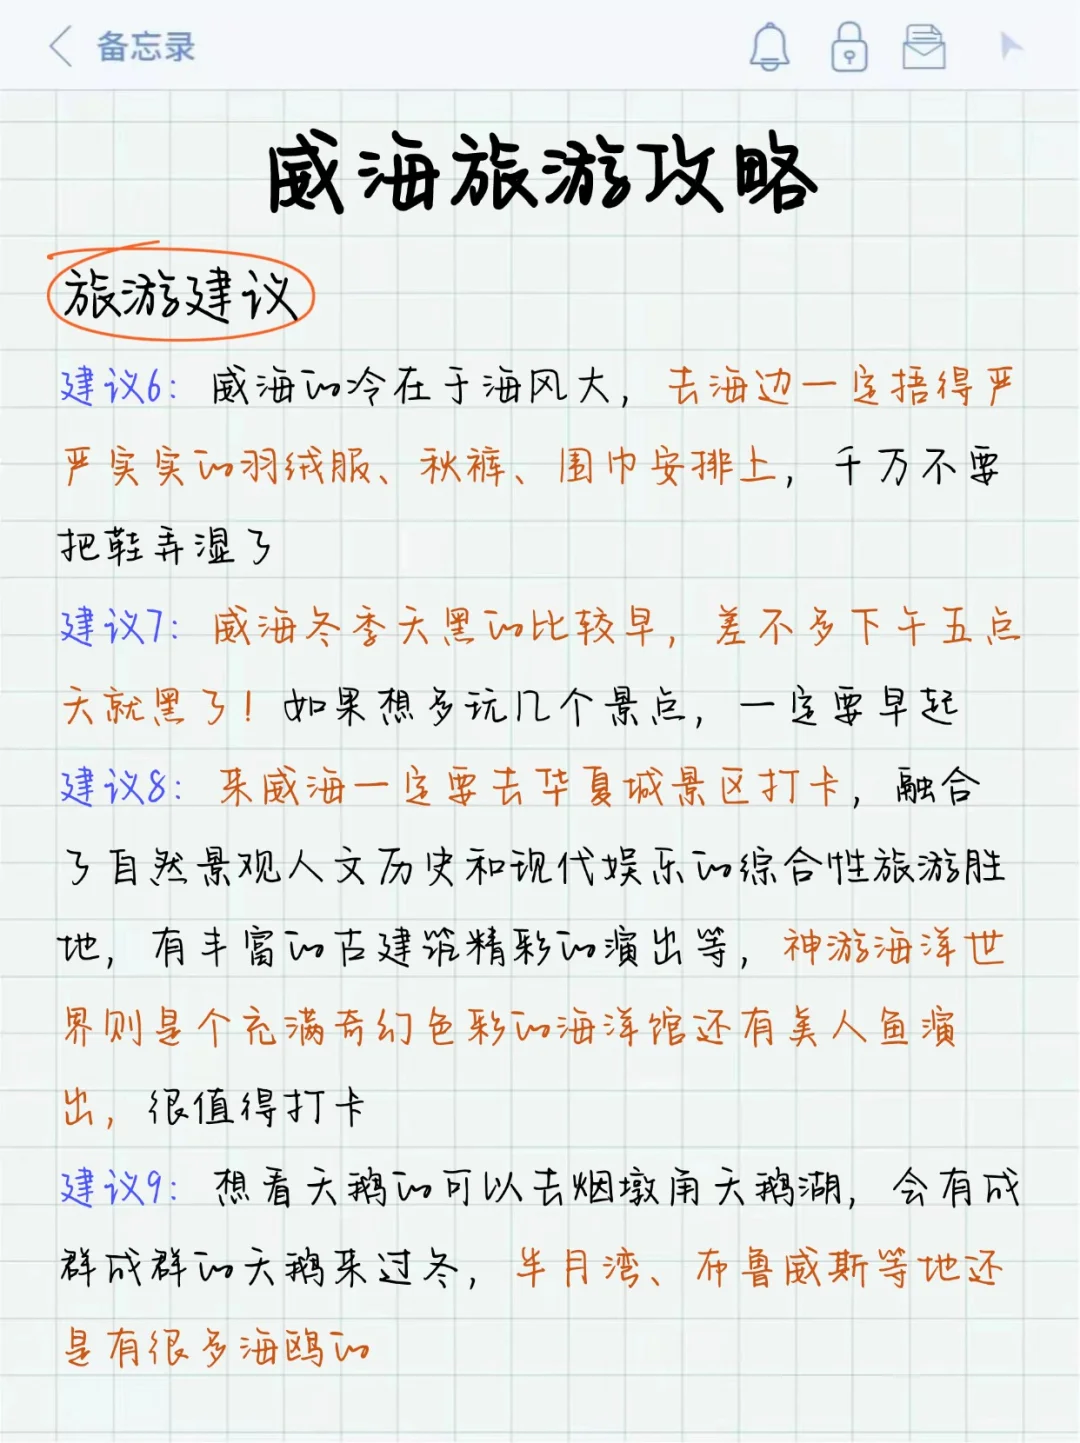 备忘录
威海旅游攻略
旅游建议
建议6：威海的冷在于海风大，去海边一定捂得严
严实实的羽绒服、秋裤、围巾安排上，千万不要
把鞋弄湿了
建议7：威海冬季天黑的比较早，差不多下午五点
天就黑了！如果想多玩几个景点，一定要早起
建议8：来威海一定要去华夏城景区打卡，融合
了自然景观人文历史和现代娱乐的综合性旅游胜
地，有丰富的古建筑精彩的演出等，神游海洋世
界则是个充满奇幻色彩的海洋馆还有美人鱼演
出，很值得打卡
建议9：想看天鹅的可以去烟墩角天鹅湖，会有成
群成群的天鹅来过冬，半月湾、布鲁威斯等地还
是有很多海鸥的